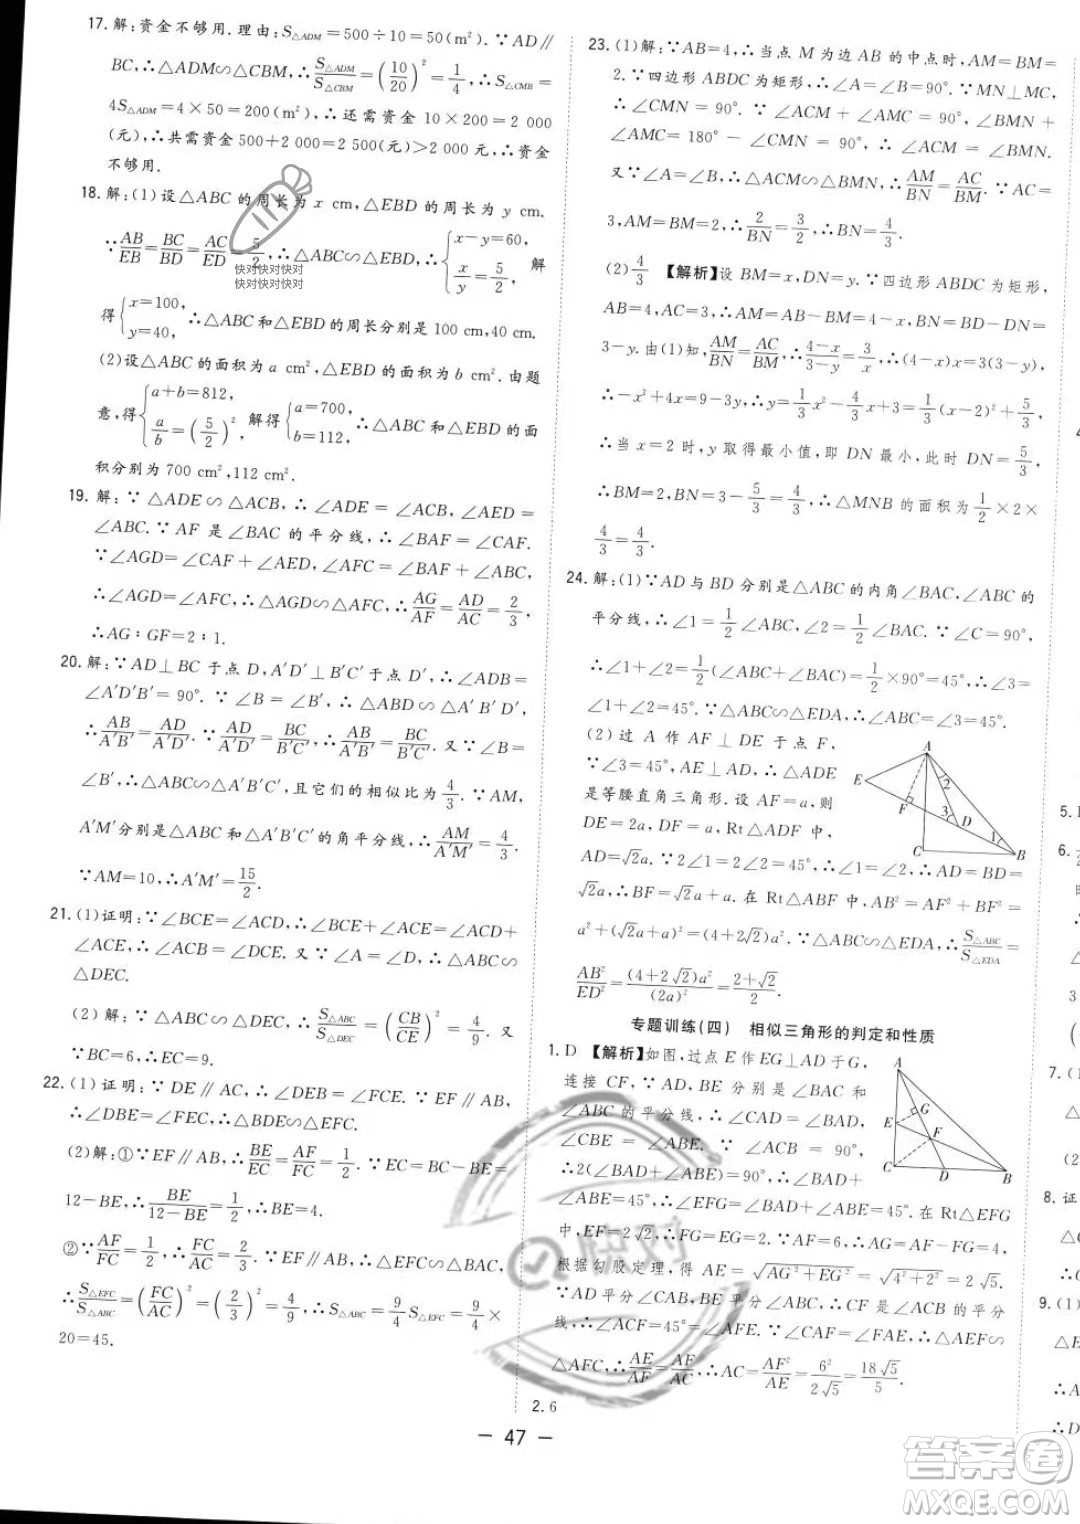 17.解:资金不够用.理由:S△ADM=500÷10=50(m²).∵AD∥
BC,∴△ADM∽△CBM,∴S△ADM/S△CBM=(10/20)²=1/4,∴S△CMB=
4S△ADM=4×50=200(m²),∴还需资金10×200=2 000
(元),∴共需资金500+2 000=2 500(元)>2 000元,∴资金
不够用.
18.解:(1)设△ABC的周长为x cm,△EBD的周长为y cm.
∵AB/EB=BC/BD=AC/ED=5/2,∴△ABC∽△EBD,∴{x-y=60, x/y=5/2, 解
得{x=100, y=40,∴△ABC和△EBD的周长分别是100 cm,40 cm.
(2)设△ABC的面积为a cm²,△EBD的面积为b cm².由题
意,得{a+b=812, a/b=(5/2)², 解得{a=700, b=112,∴△ABC和△EBD的面
积分别为700 cm²,112 cm².
19.解:∵△ADE∽△ACB,∴∠ADE=∠ACB,∠AED=
∠ABC.∵AF是∠BAC的平分线,∴∠BAF=∠CAF.
∵∠AGD=∠CAF+∠AED,∠AFC=∠BAF+∠ABC,
∴∠AGD=∠AFC,∴△AGD∽△AFC,∴AG/AF=AD/AC=2/3,
∴AG∶GF=2∶1.
20.解:∵AD⊥BC于点D,A′D′⊥B′C′于点D′,∴∠ADB=
∠A′D′B′=90°.∵∠B=∠B′,∴△ABD∽△A′B′D′,
∴AB/A′B′=AD/A′D′.∵AD/A′D′=BC/B′C′,∴AB/A′B′=BC/B′C′.又∵∠B=
∠B′,∴△ABC∽△A′B′C′,且它们的相似比为4/3.∵AM,
A′M′分别是△ABC和△A′B′C′的角平分线,∴AM/A′M′=4/3.
∵AM=10,∴A′M′=15/2.
21.(1)证明:∵∠BCE=∠ACD,∴∠BCE+∠ACE=∠ACD+
∠ACE,∴∠ACB=∠DCE.又∵∠A=∠D,∴△ABC∽
△DEC.
(2)解:∵△ABC∽△DEC,∴S△ABC/S△DEC=(CB/CE)²=4/9.又
∵BC=6,∴EC=9.
22.(1)证明:∵DE∥AC,∴∠DEB=∠FCE.∵EF∥AB,
∴∠DBE=∠FEC,∴△BDE∽△EFC.
(2)解:①∵EF∥AB,∴BE/EC=AF/FC=1/2.∵EC=BC-BE=
12-BE,∴BE/(12-BE)=1/2,∴BE=4.
②∵AF/FC=1/2,∴FC/AC=2/3.∵EF∥AB,∴△EFC∽△BAC,
∴S△EFC/S△ABC=(FC/AC)²=(2/3)²=4/9,∴S△ABC=9/4S△EFC=9/4×
20=45.
23.(1)解:∵AB=4,∴当点M为边AB的中点时,AM=BM=
2.∵四边形ABDC为矩形,∴∠A=∠B=90°.∵MN⊥MC,
∴∠CMN=90°.∵∠ACM+∠AMC=∠BMN+
∠AMC=180°-∠CMN=90°,∴∠ACM=∠BMN.
又∵∠A=∠B,∴△ACM∽△BMN,∴AM/BN=AC/BM.∵AC=
3,AM=BM=2,∴2/BN=3/2,∴BN=4/3.
(2)4/3 【解析】设BM=x,DN=y.∵四边形ABDC为矩形,
AB=4,AC=3,∴AM=AB-BM=4-x,BN=BD-DN=
3-y.由(1)知,AM/BN=AC/BM,∴(4-x)/(3-y)=3/x,∴(4-x)x=3(3-y),
∴-x²+4x=9-3y,∴y=1/3x²-4/3x+3=1/3(x-2)²+5/3,
∴当x=2时,y取得最小值,即DN最小,∴DN=5/3,
∴BM=2,BN=3-5/3=4/3,∴△MNB的面积为1/2×2×
4/3=4/3.
24.解:(1)∵AD与BD分别是△ABC的内角∠BAC,∠ABC的
平分线,∴∠1=1/2∠ABC,∠2=1/2∠BAC.∵∠C=90°,
∴∠1+∠2=1/2(∠ABC+∠BAC)=1/2×90°=45°,∴∠3=
∠1+∠2=45°.∵△ABC∽△EDA,∴∠ABC=∠3=45°.
(2)过A作AF⊥DE于点F,
∵∠3=45°,AE⊥AD,∴△ADE
是等腰直角三角形.设AF=a,则
DE=2a,DF=a,Rt△ADF中,
AD=√2a.∵∠1=∠2=45°,∴∠1=∠2,∴AD=BD=
√2a,∴BF=√2a+a.在Rt△ABF中,AB²=AF²+BF²=
a²+(√2a+a)²=(4+2√2)a².∵△ABC∽△EDA,∴S△ABC/S△EDA=
AB²/ED²=(4+2√2)a²/(2a)²=(2+√2)/2.
A
E
2
F
3
D
1
C
B
专题训练(四) 相似三角形的判定和性质
1.D 【解析】如图,过点E作EG⊥AD于G,
连接CF,∵AD,BE分别是∠BAC和
∠ABC的平分线,∴∠CAD=∠BAD,
∠CBE=∠ABE.∵∠ACB=90°,
∴2(∠BAD+∠ABE)=90°,∴∠BAD+
∠ABE=45°,∴∠EFG=∠BAD+∠ABE=45°.在Rt△EFG
中,EF=2√2,∴FG=EG=2.∵AF=6,∴AG=AF-FG=4.
根据勾股定理,得AE=√(AG²+EG²)=√(4²+2²)=2√5.
∵AD平分∠CAB,BE平分∠ABC,∴CF是∠ACB的平分
线,∴∠ACF=45°=∠AFE.∵∠CAF=∠FAE,∴△AEF∽
△AFC,∴AE/AF=AF/AC,∴AC=AF²/AE=6²/2√5=18√5/5.
A
G
E
F
C
D
B
2.6
— 47 —
快对快对快对
快对快对快对
快对
答案圈
MXQE.COM